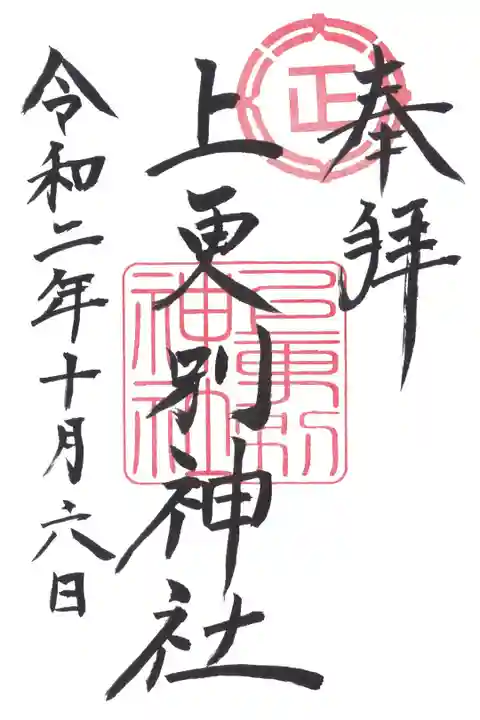 奉拝
正
上更別神社
上更別神社
令和二年十月六日